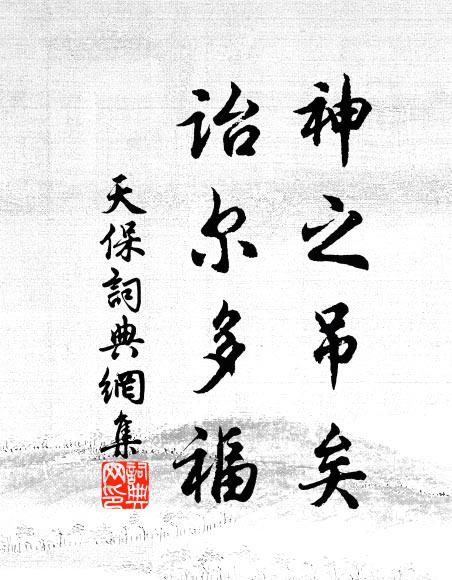 神之吊矣
诒尔多福
天保詞典網集
詞典网印